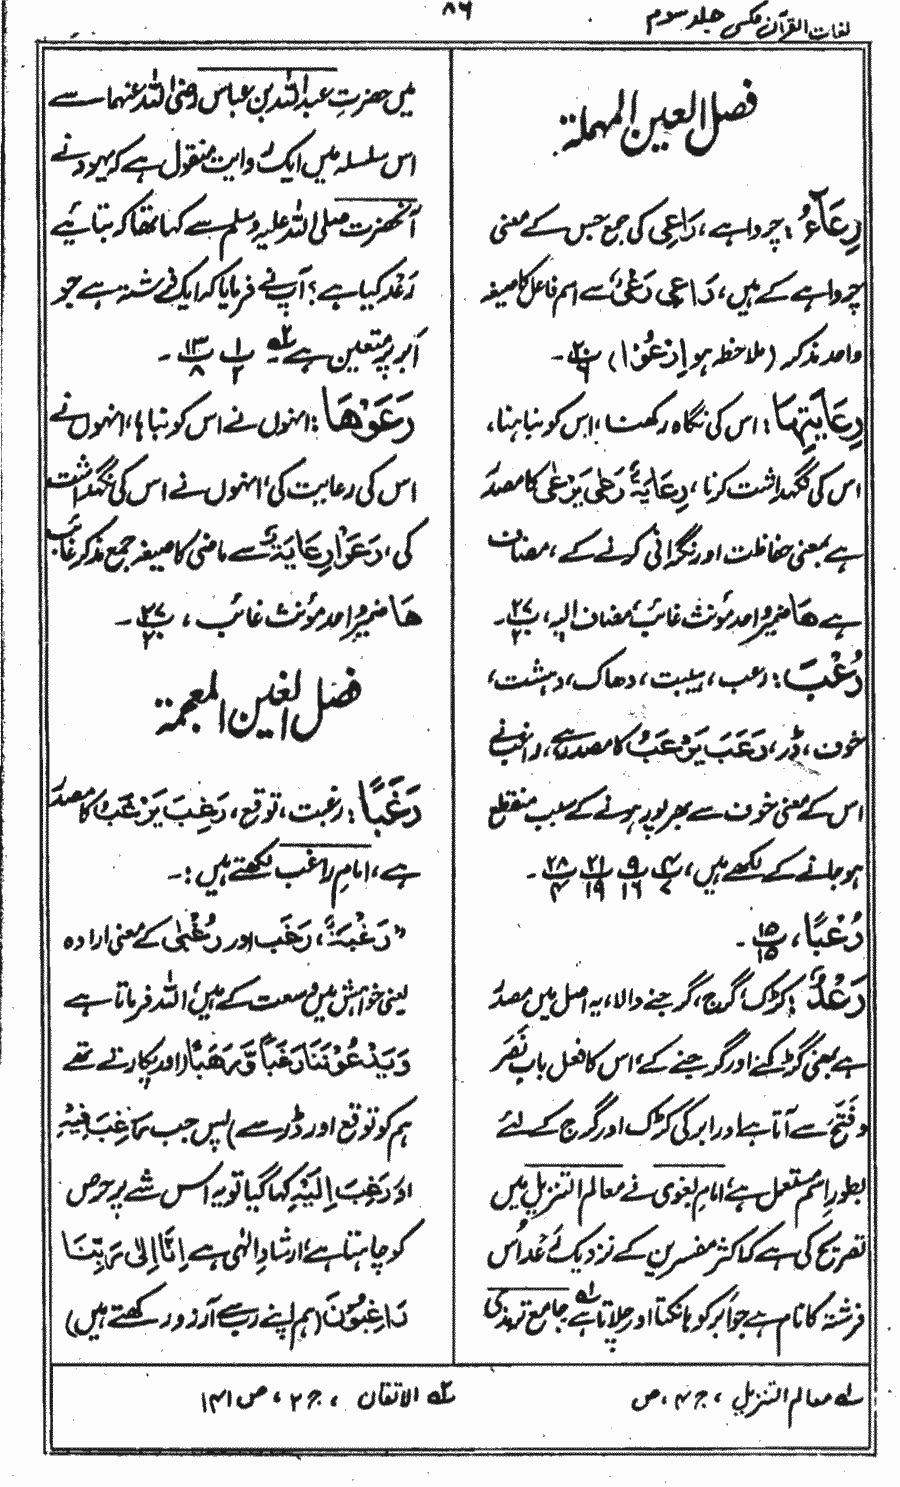 لغات القرآن مکمل جلد سوم
۸۶
فصل العین المہملۃ
رِعَآءُ : چرواہے، رَاعِی کی جمع جس کے معنی
چرواہے کے ہیں، رَاعِی رَعْیٌ سے اسم فاعل کا صیغہ
واحد مذکر (ملاحظہ ہو اِرْعَوْا) ۲۰/۹۔
رِعَایَتِہَا : اس کی نگاہ رکھنا، اس کو نباہنا،
اس کی نگہداشت کرنا، رِعَایَۃٌ رَعٰی یَرْعٰی کا مصدر
ہے بمعنی حفاظت اور نگرانی کرنے کے، مضاف
ہے ھَا ضمیر واحد مؤنث غائب، مضاف الیہ، ۲۷/۲۰۔
رُعْبَ : رعب، ہیبت، دھاک، دہشت،
خوف، ڈر، رَعَبَ یَرْعَبُ کا مصدر ہے، راغب نے
اس کے معنی خوف سے بھرپور ہونے کے سبب منقطع
ہو جانے کے لکھے ہیں، ۴/۷ ۹/۱۶ ۲۱/۱۹ ۲۸/۴۔
رُعْبًا، ۱۵/۱۵۔
رَعْدٌ : کڑک، گرج، گرجنے والا، یہ اصل میں مصدر
ہے بمعنی کڑکنے اور گرجنے کے، اس کا فعل باب نَصَرَ
و فَتَحَ سے آتا ہے اور ابر کی کڑک اور گرج کے لئے
بطور اسم مستعمل ہے، امام بغوی نے معالم التنزیل میں
تصریح کی ہے کہ اکثر مفسرین کے نزدیک رَعْد اُس
فرشتہ کا نام ہے جو ابر کو ہانکتا اور چلاتا ہے ۱؎ جامع ترمذی
میں حضرت عبداللہ بن عباس رضی اللہ عنہما سے
اس سلسلہ میں ایک روایت منقول ہے کہ یہود نے
آنحضرت صلی اللہ علیہ وسلم سے کہا تھا کہ بتائیے
رَعْد کیا ہے؟ آپ نے فرمایا کہ ایک فرشتہ ہے جو
اَبر پر متعین ہے ۲؎ ۱/۲ ۱۳/۸۔
رَعَوْھَا : انہوں نے اس کو نباہا، انہوں نے
اس کی رعایت کی، انہوں نے اس کی نگہداشت
کی، رَعَوْا رِعَایَۃٌ سے ماضی کا صیغہ جمع مذکر غائب
ھَا ضمیر واحد مؤنث غائب، ۲۷/۲۰۔
فصل الغین المعجمۃ
رَغَبًا : رغبت، توقع، رَغِبَ یَرْغَبُ کا مصدر
ہے، امام راغب لکھتے ہیں :۔
” رَغْبَۃٌ، رَغَب اور رَغْبٰی کے معنی ارادہ
یعنی خواہش میں وسعت کے ہیں، اللہ فرماتا ہے
وَیَدْعُوْنَنَا رَغَبًا وَّرَھَبًا (اور پکارتے تھے
ہم کو توقع اور ڈر سے) پس جب رَغِبَ فِیْہِ
اور رَغِبَ اِلَیْہِ کہا گیا تو یہ اس شے پر حرص
کو چاہتا ہے، ارشادِ الٰہی ہے اِنَّا اِلٰی رَبِّنَا
رَاغِبُوْنَ (ہم اپنے رب سے آرزو رکھتے ہیں)
۱؎ معالم التنزیل، ج ۴، ص
۲؎ الاتقان، ج ۲، ص ۱۴۱